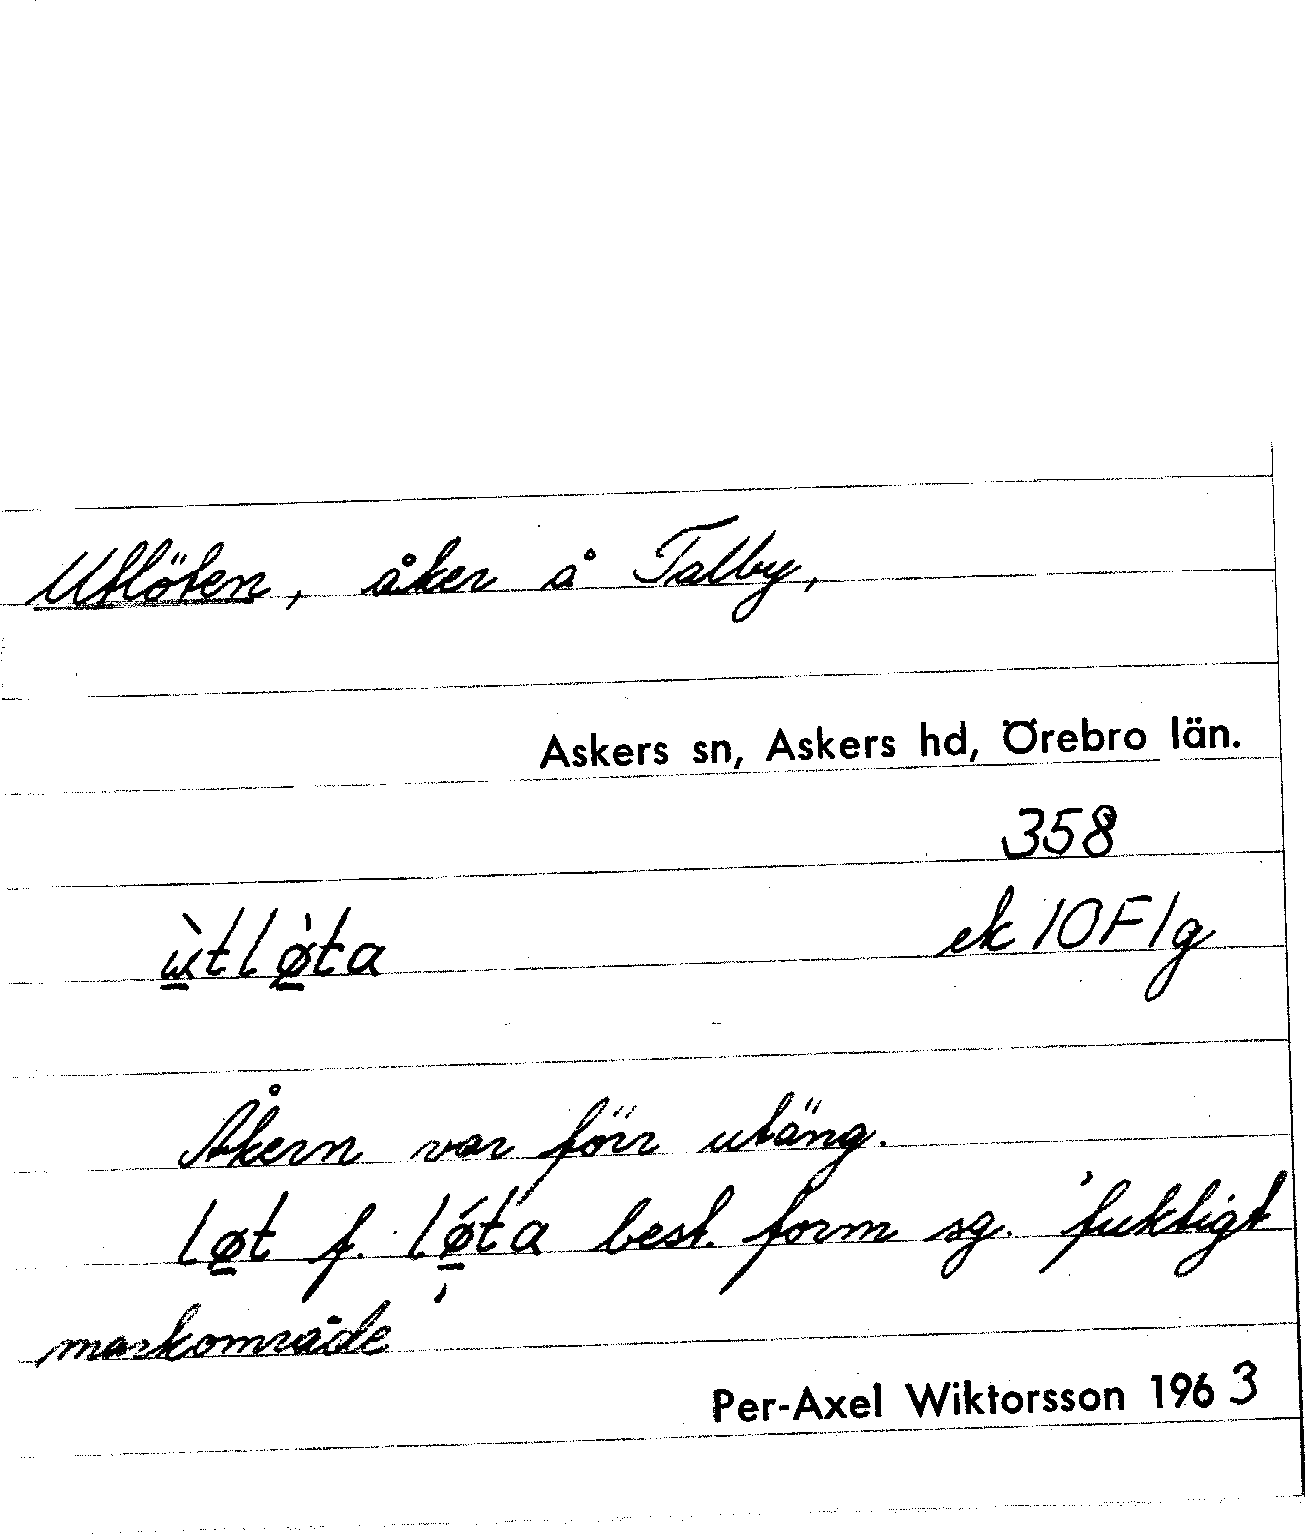 Utlöten, åker å Talby,
Askers sn, Askers hd, Örebro län.
358
ùtlø̀ta
ek 10F1g
Åkern var förr utäng.
løt f. lǿta best. form sg. 'fuktigt
markområde'
Per-Axel Wiktorsson 1963